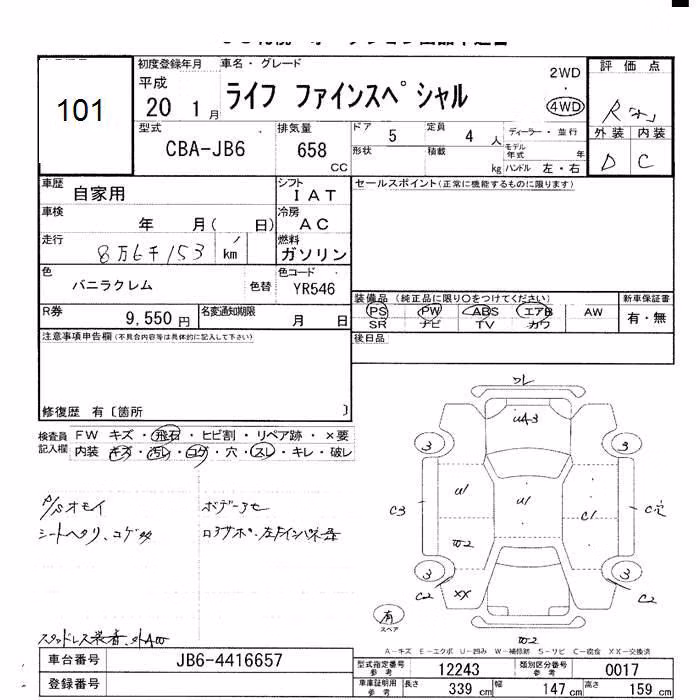 101
初度登録年月
平成
20 1 月
車名・グレード
ライフ ファインスペシャル
2WD
・
4WD
評価点
R
外装 内装
D C
型式
CBA-JB6
排気量
658
CC
ドア 5
定員 4 人
ディーラー・並行
形状
積載 kg
モデル年式 年
ハンドル 左・右
車歴 自家用
シフト IAT
セールスポイント(正常に機能するものに限ります)
車検 年 月( 日)
冷房 AC
走行 8万6千153 km
燃料 ガソリン
色 バニラクレム
色替
色コード YR546
R券 9,550 円
名変通知期限 月 日
装備品(純正品に限り〇をつけてください)
新車保証書
PS PW ABS エアB AW
有・無
SR ナビ TV カワ
注意事項申告欄(不具合内容等は具体的に記入して下さい)
後日品
修復歴 有〔箇所 〕
検査員記入欄
FW キズ・飛石・ヒビ割・リペア跡・×要
内装 キズ・汚レ・コゲ・穴・スレ・キレ・破レ
P/Sオモイ
シートヘタリ、コゲ穴
U1
U1
C3
C1
3
3
3
3
W2
XX
C2
C2
有
スペア
W2
A-キズ E-エクボ U-凹み W-補修跡 S-サビ C-腐食 XX-交換済
車台番号 JB6-4416657
登録番号
型式指定番号 参考 12243
類別区分番号 参考 0017
車庫証明用 参考 長さ 339 cm 幅 147 cm 高さ 159 cm